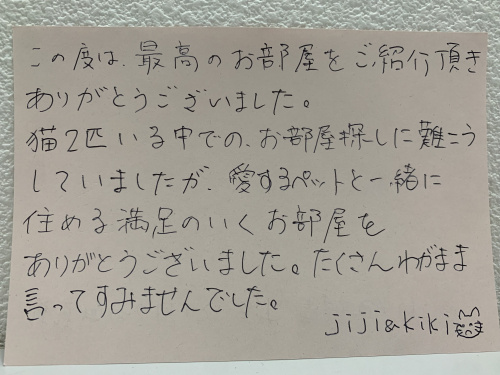 この度は、最高のお部屋をご紹介頂き
ありがとうございました。
猫2匹いる中での、お部屋探しに難こう
していましたが、愛するペットと一緒に
住める満足のいくお部屋を
ありがとうございました。たくさんわがまま
言ってすみませんでした。
jiji&kiki